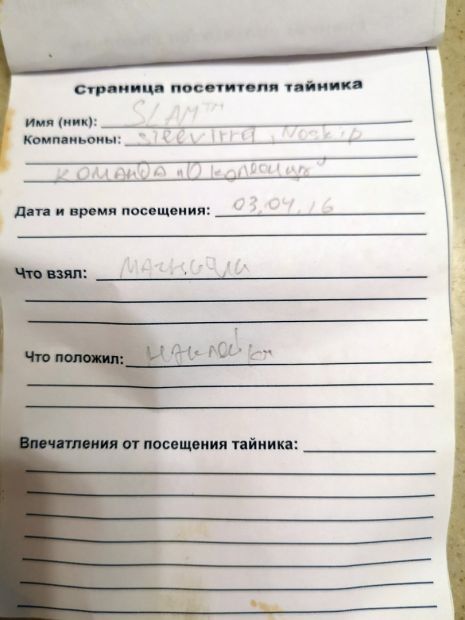 Страница посетителя тайника
Имя (ник): SLAM™
Компаньоны: , Noskip
КОМАНДА "О
Дата и время посещения: 03.04.16
Что взял:
Что положил: НАКЛЕЙКИ
Впечатления от посещения тайника: